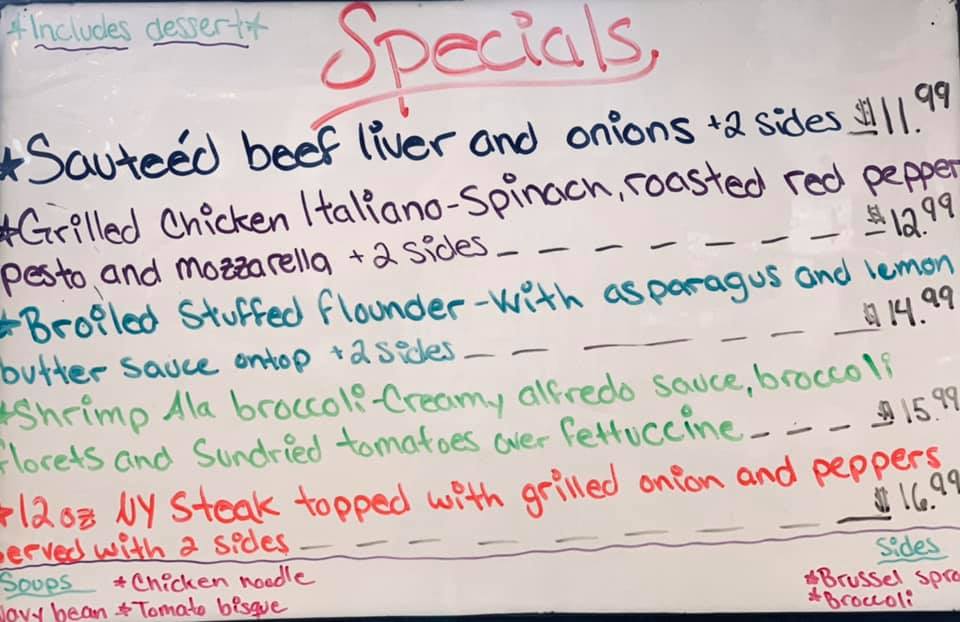 *Includes dessert*
Specials
*Sauteéd beef liver and onions +2 sides $11.99
*Grilled Chicken Italiano-Spinach, roasted red pepper
pesto, and mozzarella +2 sides $12.99
*Broiled Stuffed flounder-with asparagus and lemon
butter sauce ontop +2 sides $14.99
*Shrimp Ala broccoli-Creamy alfredo sauce, broccoli
florets and Sundried tomatoes over fettuccine $15.99
*12oz NY Steak topped with grilled onion and peppers
served with 2 sides $16.99
Soups *Chicken noodle
Navy bean *Tomato bisque
Sides
*Brussel spro
*Broccoli